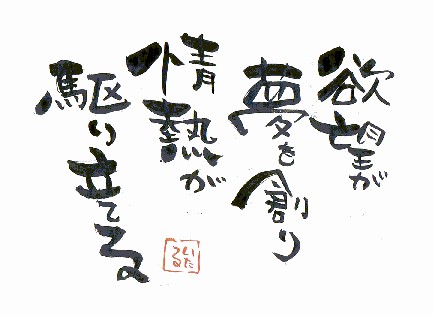 欲望が
夢を創り
情熱が
駆り立てる